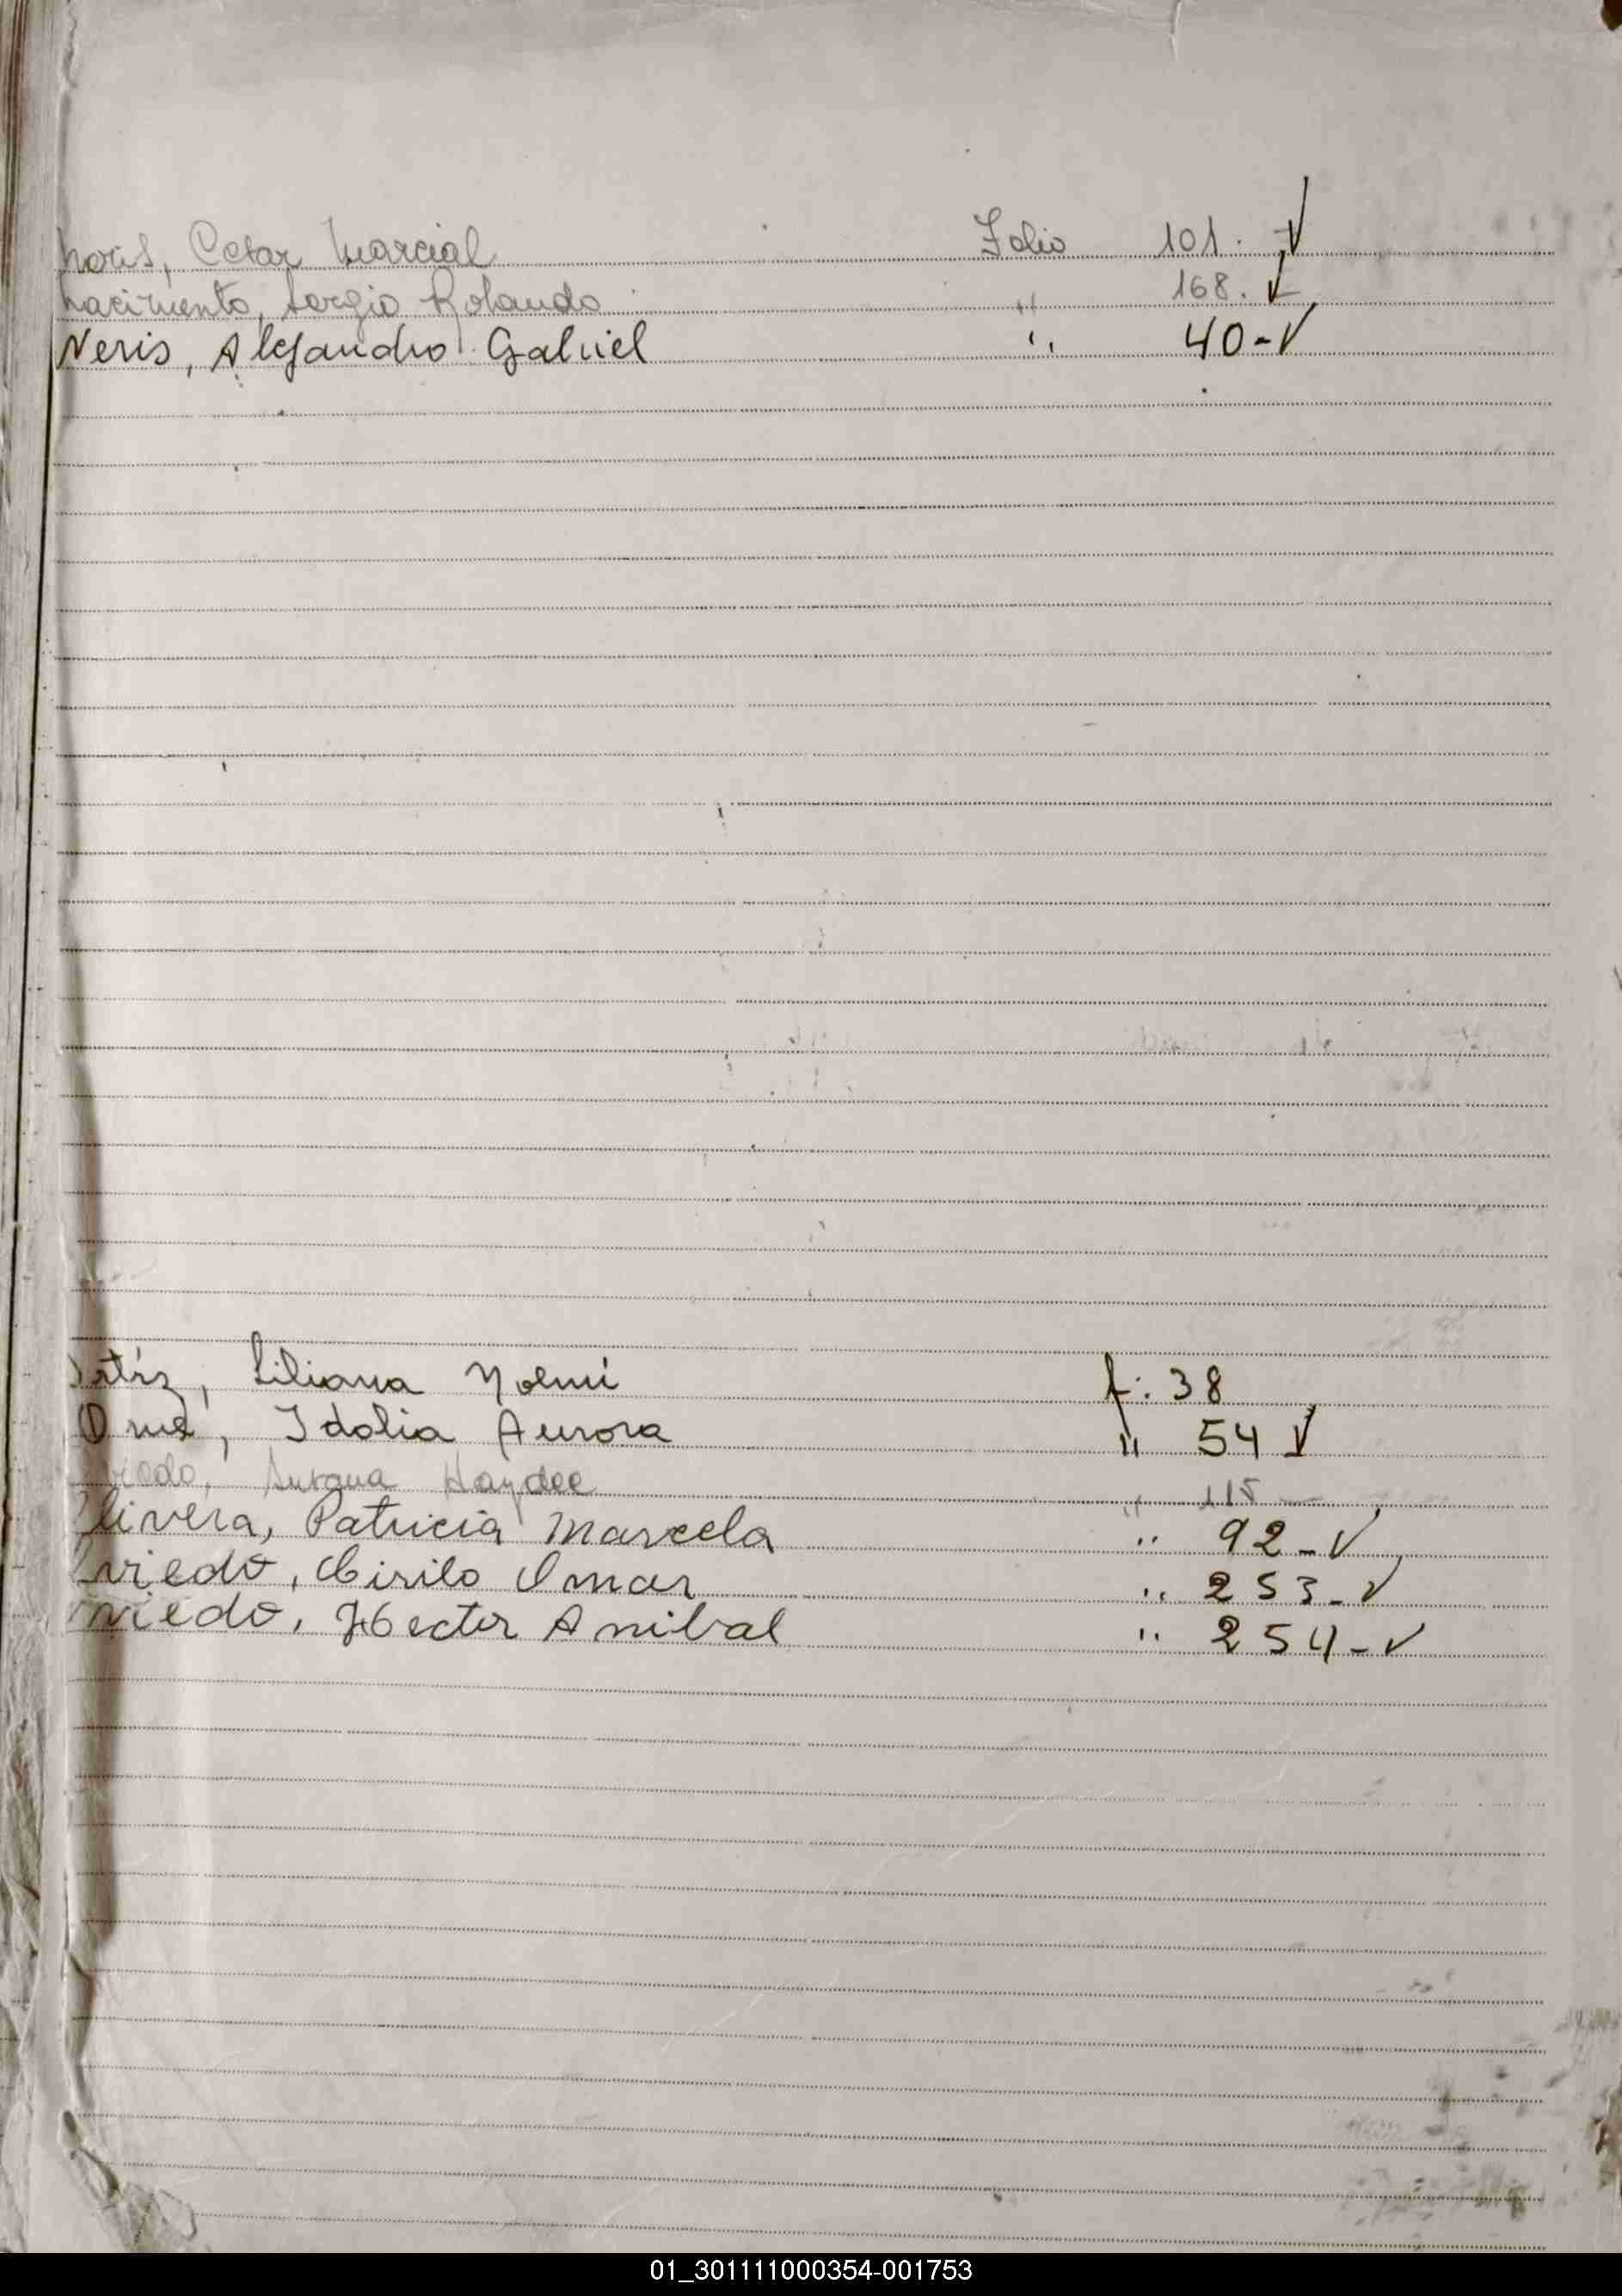 Noris, Cesar Marcial Folio 101. ✓
Nacimento, Sergio Rolando " 168. ✓
Neris, Alejandro Gabriel " 40-✓
Ortíz, Liliana Noemí f: 38
Idolia Aurora " 54 ✓
viedo, Susana Haydee " 115 —
Olivera, Patricia Marcela " 92-✓
Oviedo, Cirilo Omar " 253-✓
Oviedo, Hector Anibal " 254-✓
01_301111000354-001753